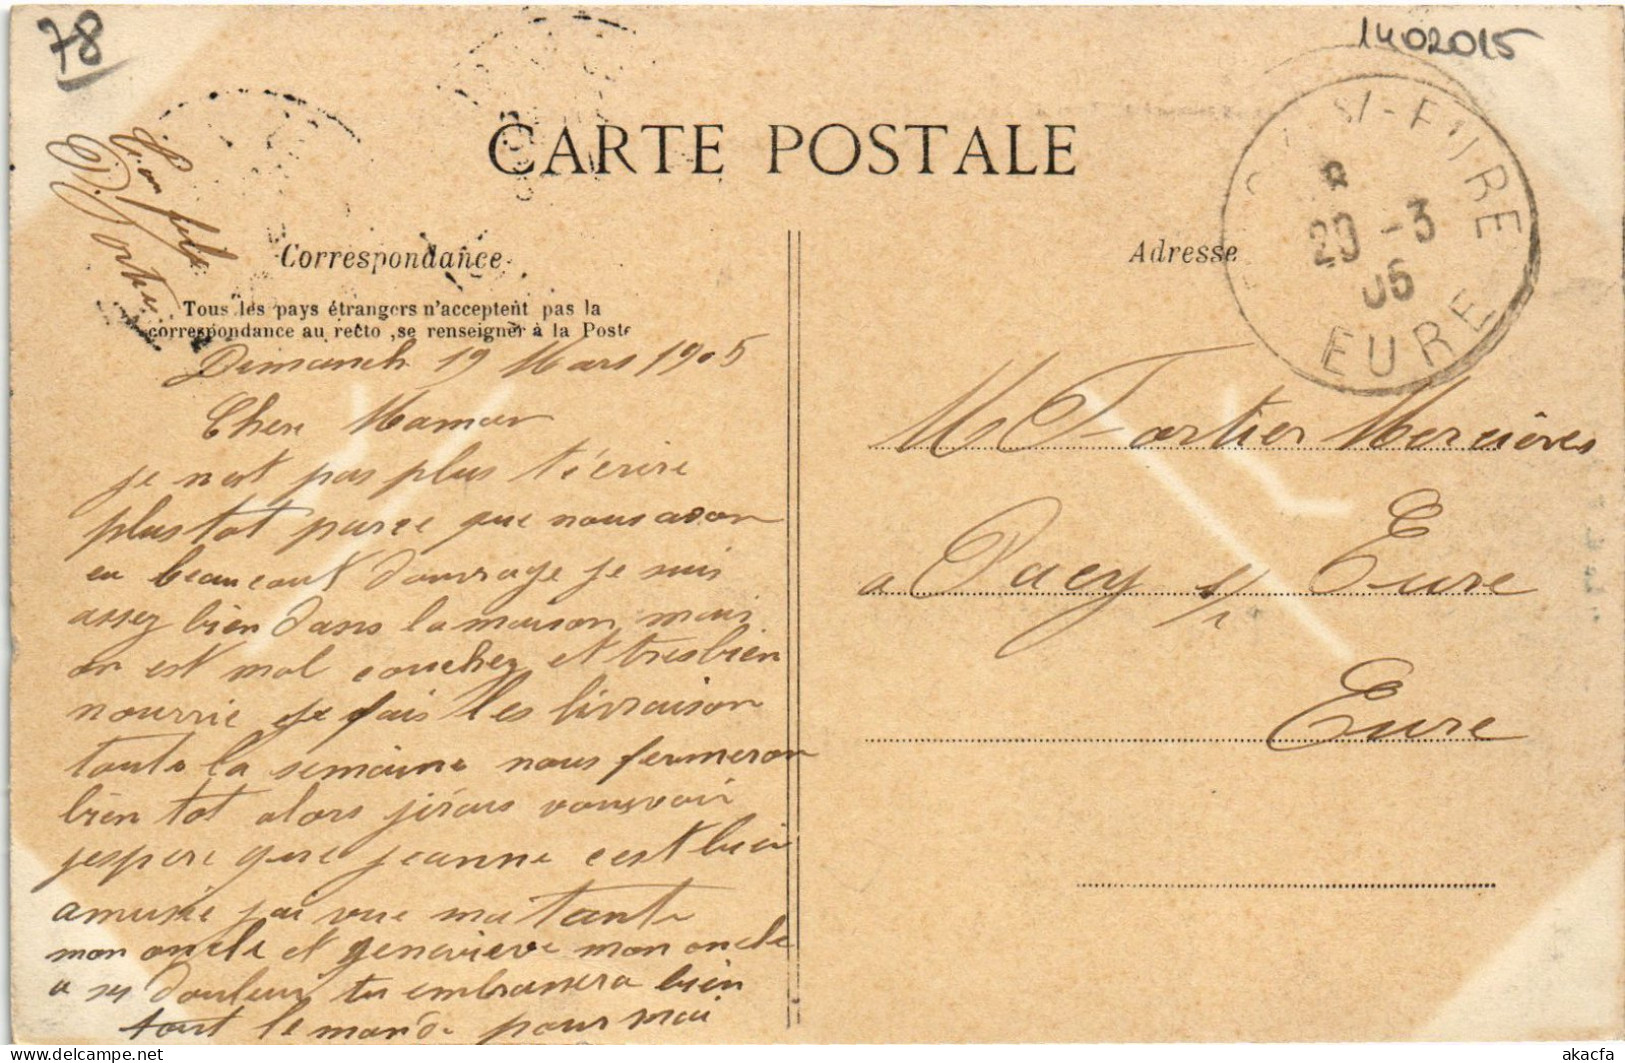 78
1402015
CARTE POSTALE
Correspondance
Adresse
Tous les pays étrangers n'acceptent pas la
correspondance au recto, se renseigner à la Poste
Ton fils
Fortier
Dimanch 19 Mars 1905
Chere Maman
je n'est pas plus t'écrire
plus tot parce que nous avon
eu beaucout d'ouvrage je suis
assez bien dans la maison mais
on est mal couchez et tres bien
nourrie je fais les livraison
toute la semaine nous fermeron
bien tot alors j'irais vous voir
j'espere que jeanne c'est bien
amusée j'ai vue ma tante
mon oncle et genevieve mon oncle
a ses douleur tu embrassera bien
tout le monde pour moi
Fortier Mercières
a Pacy s/ Eure
Eure
8
29 -3
05
EURE
akacfa
delcampe.net